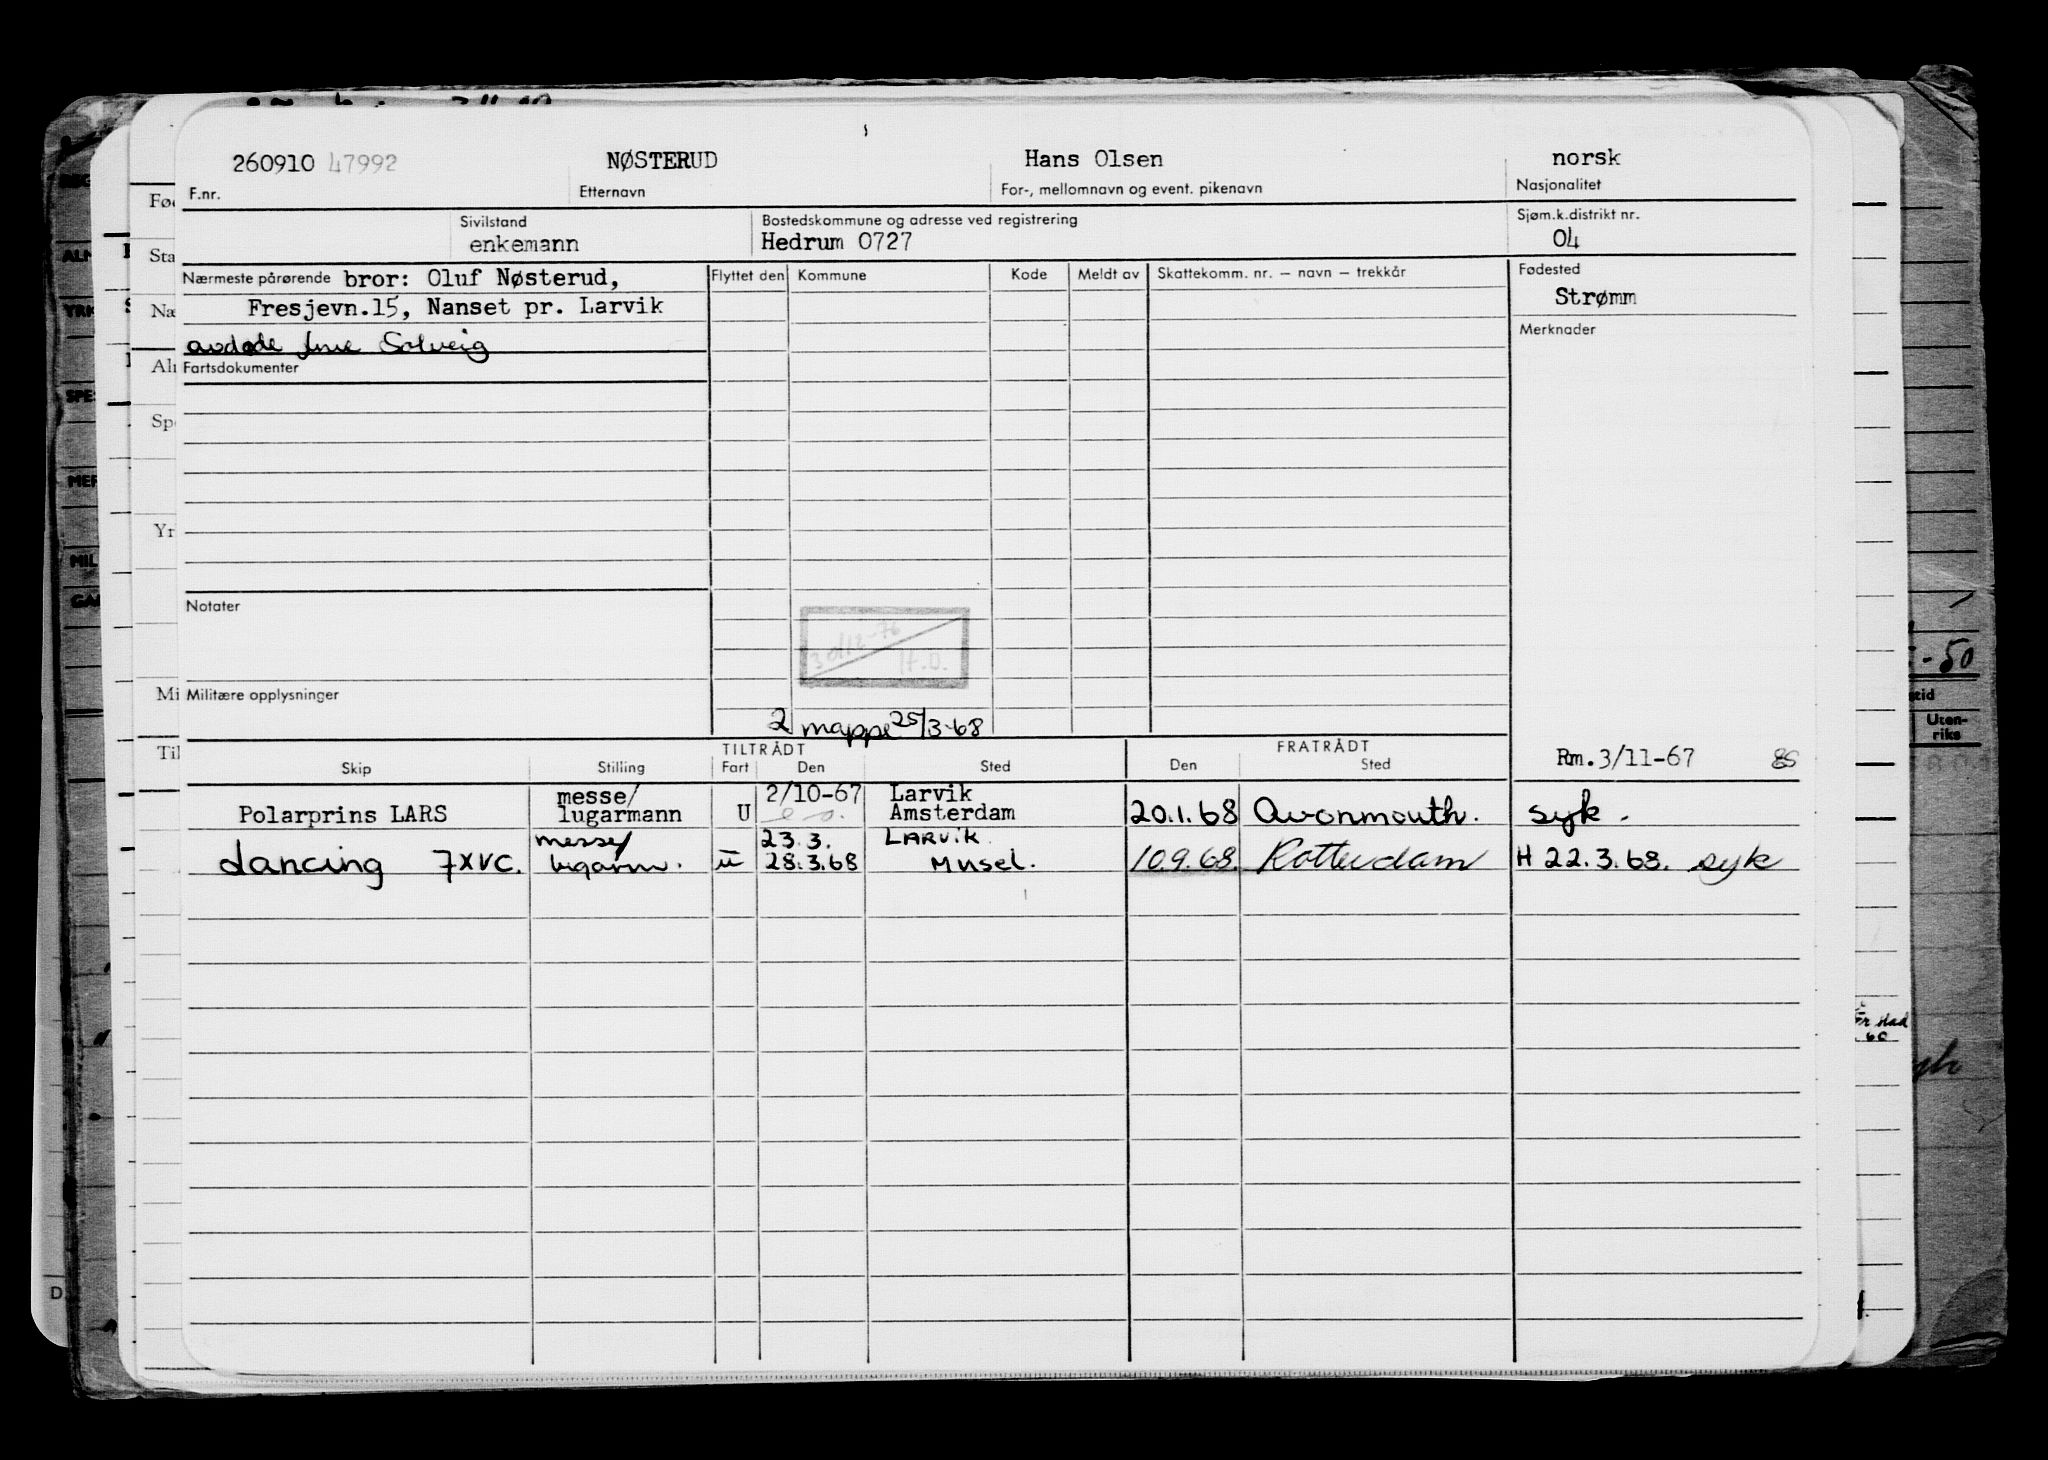 260910 47992 NØSTERUD Hans Olsen norsk
F.nr. Etternavn For-, mellomnavn og event. pikenavn Nasjonalitet
Sivilstand Bostedskommune og adresse ved registrering Sjøm.k.distrikt nr.
enkemann Hedrum 0727 04
Nærmeste pårørende bror: Oluf Nøsterud, Flyttet den Kommune Kode Meldt av Skattekomm. nr. – navn – trekkår Fødested
Fresjevn.15, Nanset pr. Larvik Strømm
avdøde Solveig Merknader
Fartsdokumenter
Notater
30/12-76
H.O.
Militære opplysninger
2 mappe 25/3-68
TILTRÅDT FRATRÅDT
Skip Stilling Fart Den Sted Den Sted Rm. 3/11-67
messe/ 2/10-67 Larvik
Polarprins LARS lugarmann U Amsterdam 20.1.68 Avonmouth. syk.
messe/ 23.3. LARVIK
dancing 7XVC. lugarm. u 28.3.68 Musel. 10.9.68. Rotterdam H 22.3.68. syk
Fød
Sta
Næ
Alm
Spe
Yr
Mi
Til
ALM
YRK
SPES
MER
MIL
- 50
tid
Uten-
riks
D